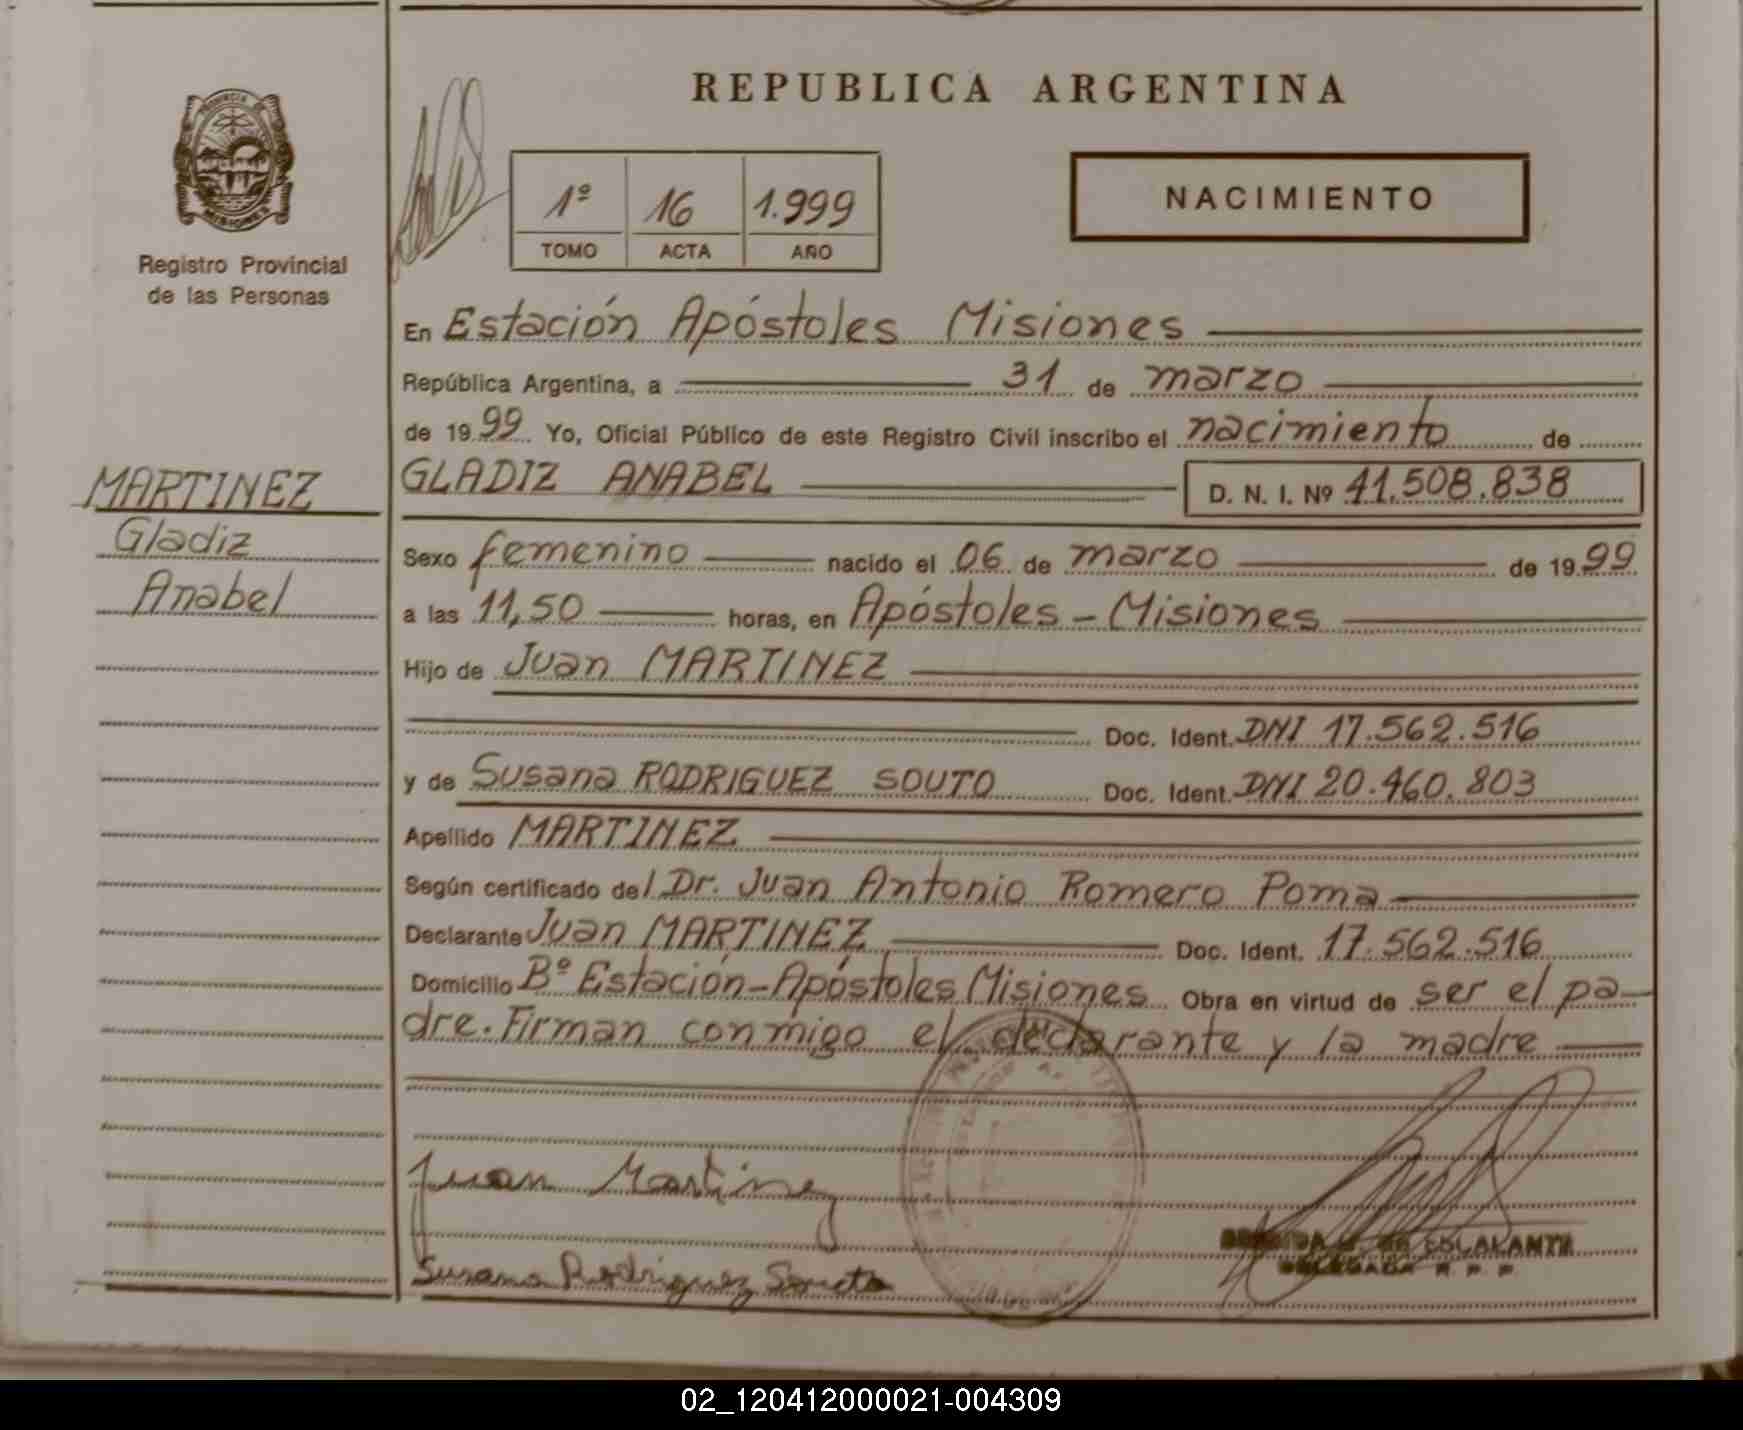 REPUBLICA ARGENTINA
PROVINCIA DE
MISIONES
Registro Provincial
de las Personas
1º 16 1.999
TOMO ACTA AÑO
NACIMIENTO
En Estación Apóstoles Misiones
República Argentina, a 31 de marzo
de 1999 Yo, Oficial Público de este Registro Civil inscribo el nacimiento de
GLADIZ ANABEL D. N. I. Nº 41.508.838
MARTINEZ
Gladiz
Anabel
Sexo femenino nacido el 06 de marzo de 1999
a las 11,50 horas, en Apóstoles - Misiones
Hijo de Juan MARTINEZ
Doc. Ident. DNI 17.562.516
y de Susana RODRIGUEZ SOUTO Doc. Ident. DNI 20.460.803
Apellido MARTINEZ
Según certificado del Dr. Juan Antonio Romero Poma
Declarante Juan MARTINEZ Doc. Ident. 17.562.516
Domicilio Bº Estación-Apóstoles Misiones Obra en virtud de ser el pa-
dre. Firman conmigo el declarante y la madre
Juan Martinez
Susana Rodriguez Souto
DELEGADA R. P. P.
02_120412000021-004309